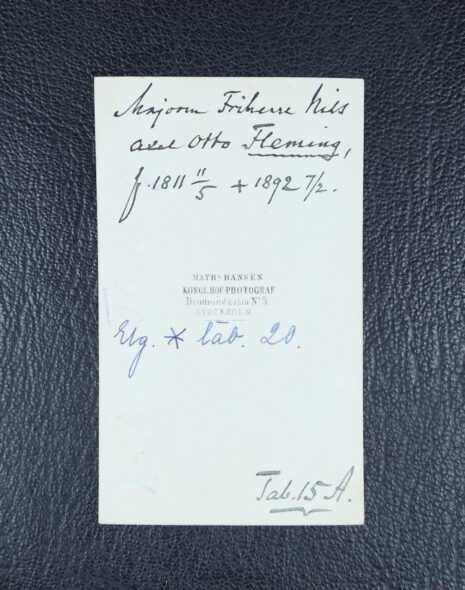 Majoren Friherre Nils
Axel Otto Fleming,
f. 1811 11/5 + 1892 7/2.
MATHS HANSEN
KONGL. HOF-PHOTOGRAF
Drottninggatan No 5,
STOCKHOLM.
Elg. * tab. 20.
Tab. 15 A.